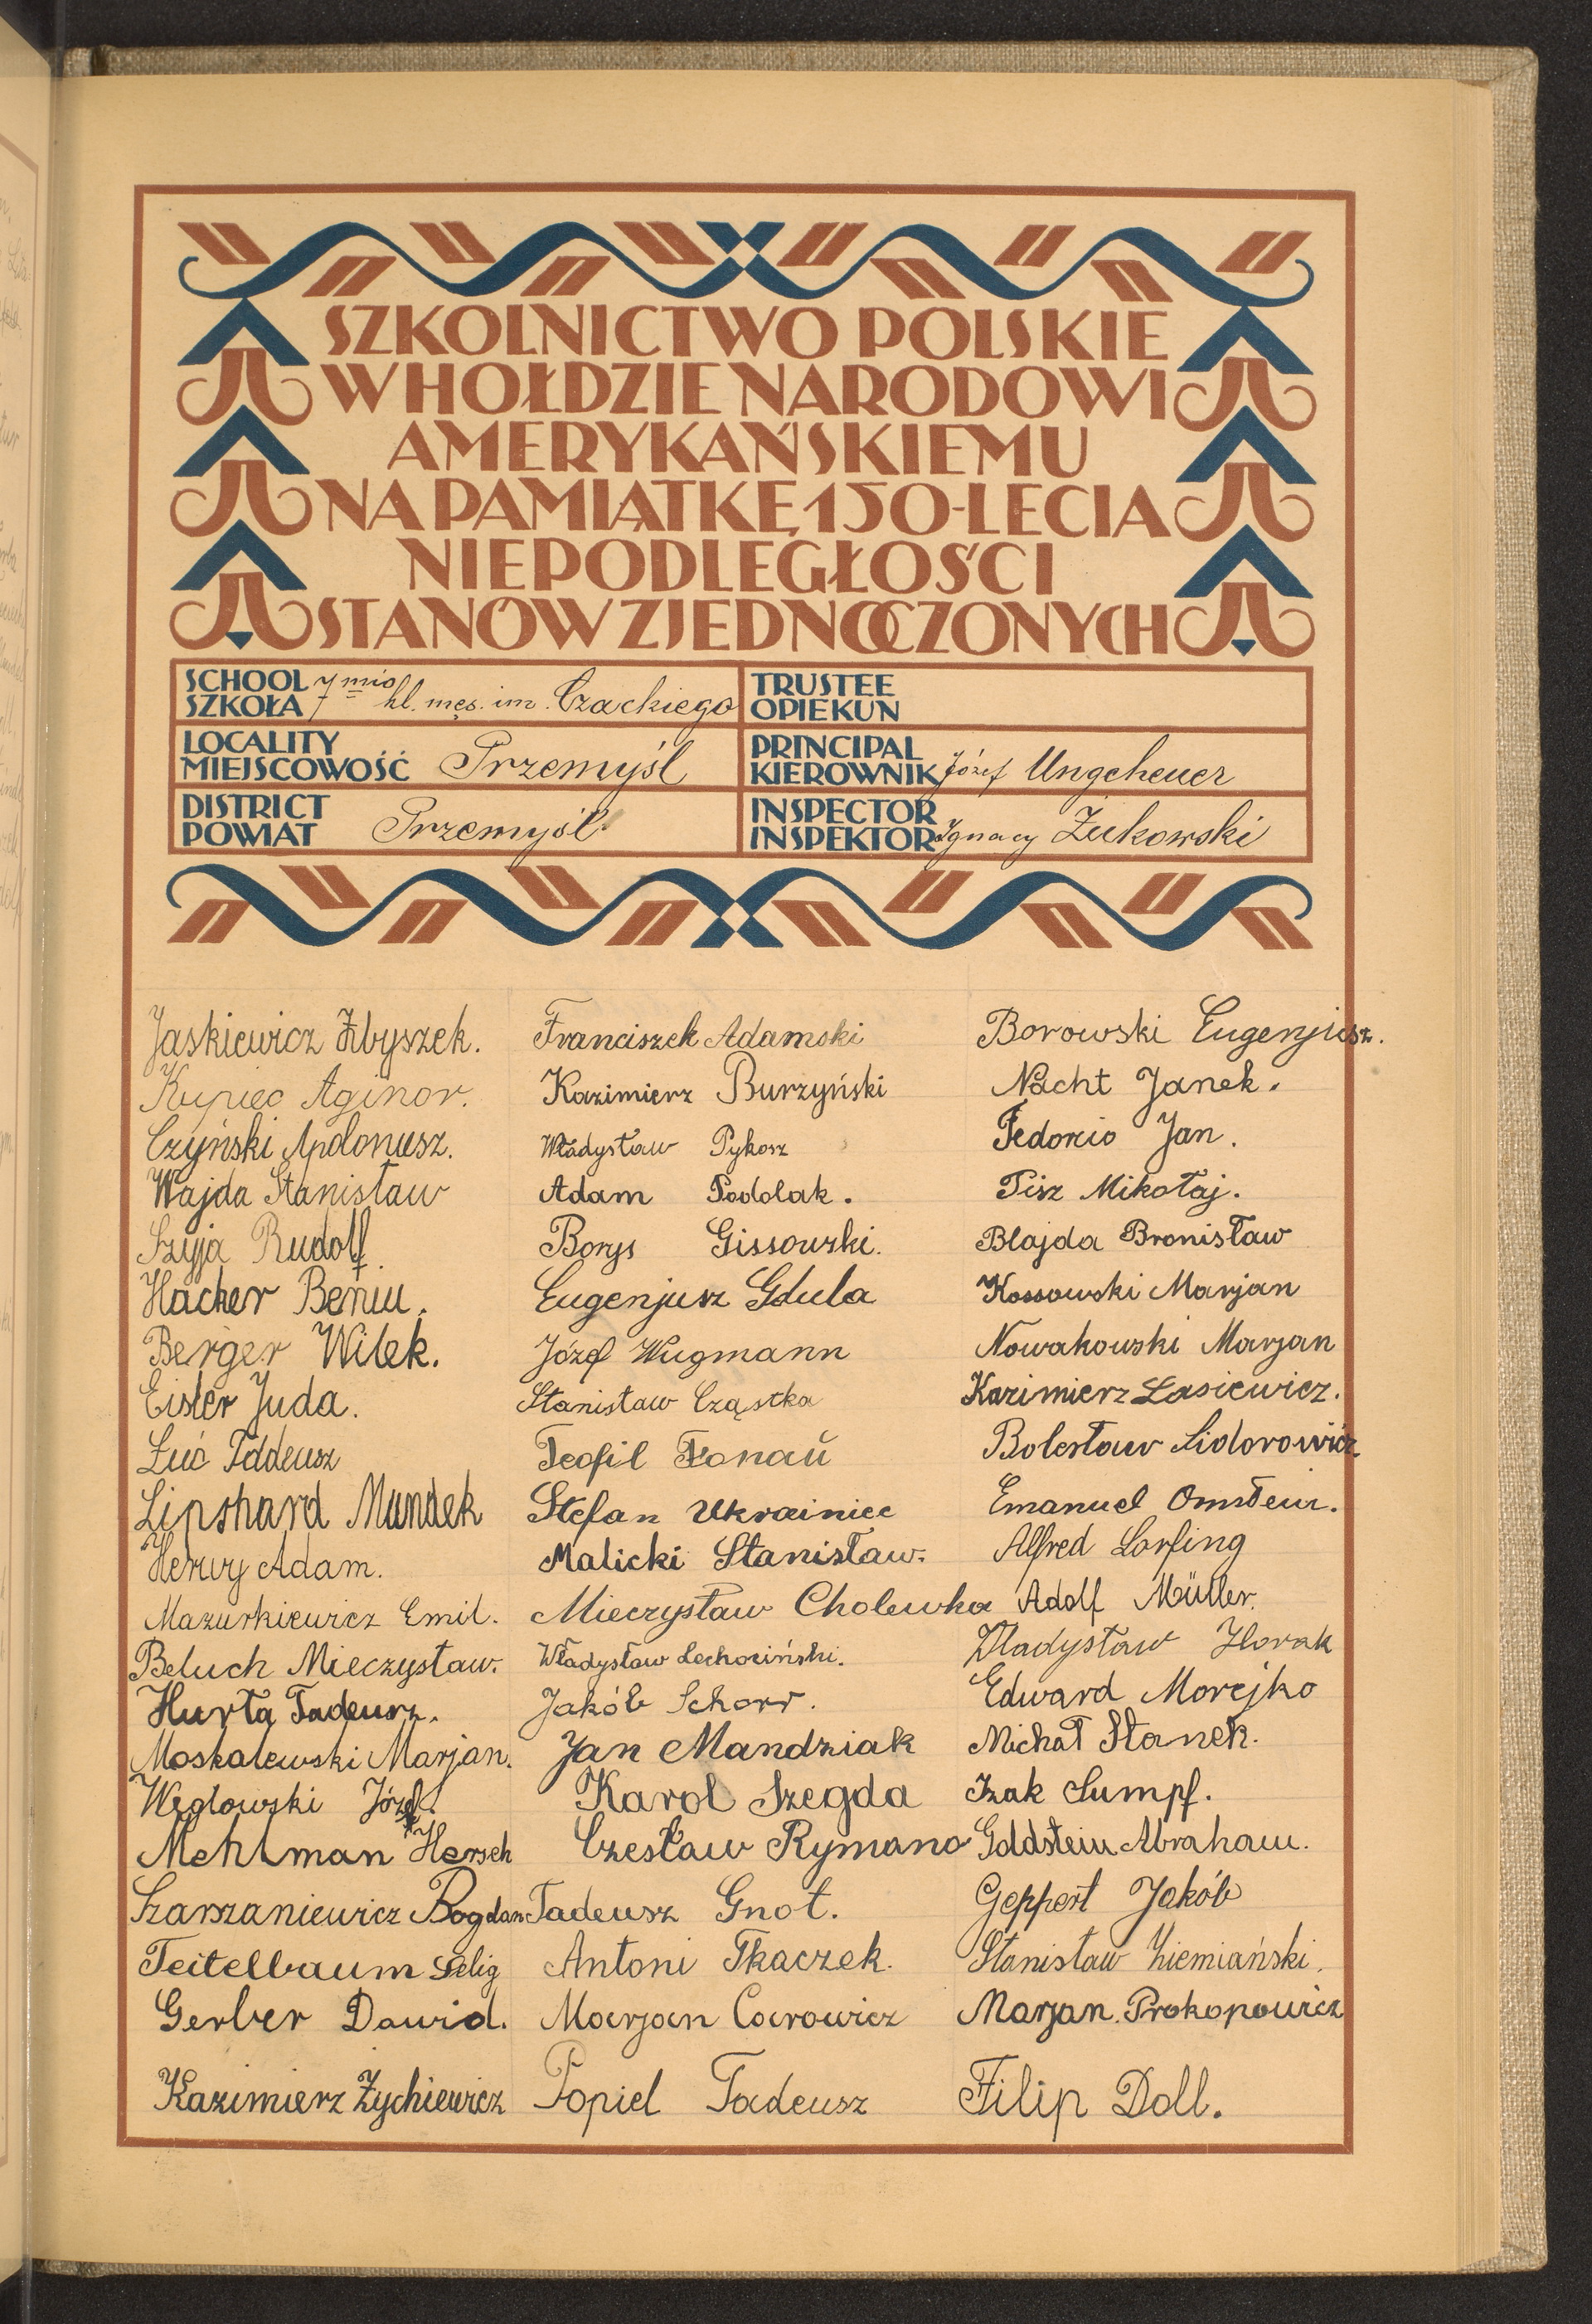 SZKOLNICTWO POLSKIE
W HOŁDZIE NARODOWI
AMERYKAŃSKIEMU
NA PAMIĄTKĘ 150-LECIA
NIEPODLEGŁOŚCI
STANÓW ZJEDNOCZONYCH
SCHOOL
SZKOŁA 7mio kl. męs. im. Czackiego
TRUSTEE
OPIEKUN
LOCALITY
MIEJSCOWOŚĆ Przemyśl
PRINCIPAL
KIEROWNIK Józef Ungeheuer
DISTRICT
POWIAT Przemyśl
INSPECTOR
INSPEKTOR Ignacy Żukowski
Jaskiewicz Zbyszek.
Kupiec Aginor.
Czyński Apolonusz.
Wajda Stanisław
Szyja Rudolf.
Hacker Beniu.
Berger Wilek.
Eisler Juda.
Luć Taddeusz
Lipshard Mundek
Adam.
Mazurkiewicz Emil.
Beluch Mieczysław.
Hurta Tadeusz.
Moskalewski Marjan.
Węglowski Józef.
Mehlman Hersch
Szaszaniewicz Bogdan
Teitelbaum Selig
Gerber Dawid.
Kazimierz Żychiewicz
Franciszek Adamski
Kazimierz Burzyński
Władysław Pykosz
Adam Podolak.
Borys Gissowski.
Eugenjusz Gdula
Józef Wugmann
Stanisław Cząstka
Teofil
Stefan Ukrainiec
Malicki Stanisław.
Mieczysław Cholewka
Władysław Lechociński.
Jakób Schorr.
Jan Mandziak
Karol Szegda
Czesław Rymano
Tadeusz Gnot.
Antoni Tkaczek.
Marjan Carowicz
Popiel Tadeusz
Borowski Eugenjusz.
Nacht Janek.
Fedorcio Jan.
Tisz Mikołaj.
Blajda Bronisław
Kossowski Marjan
Nowakowski Marjan
Kazimierz Lasiewicz.
Bolesław Sidorowicz
Emanuel Ornstein.
Alfred Lorfing
Adolf Müller.
Władysław Horak
Edward Morejko
Michał Stanek.
Izak Sumpf.
Goldstein Abraham.
Geppert Jakób
Stanisław Ziemiański.
Marjan Prokopowicz
Filip Doll.